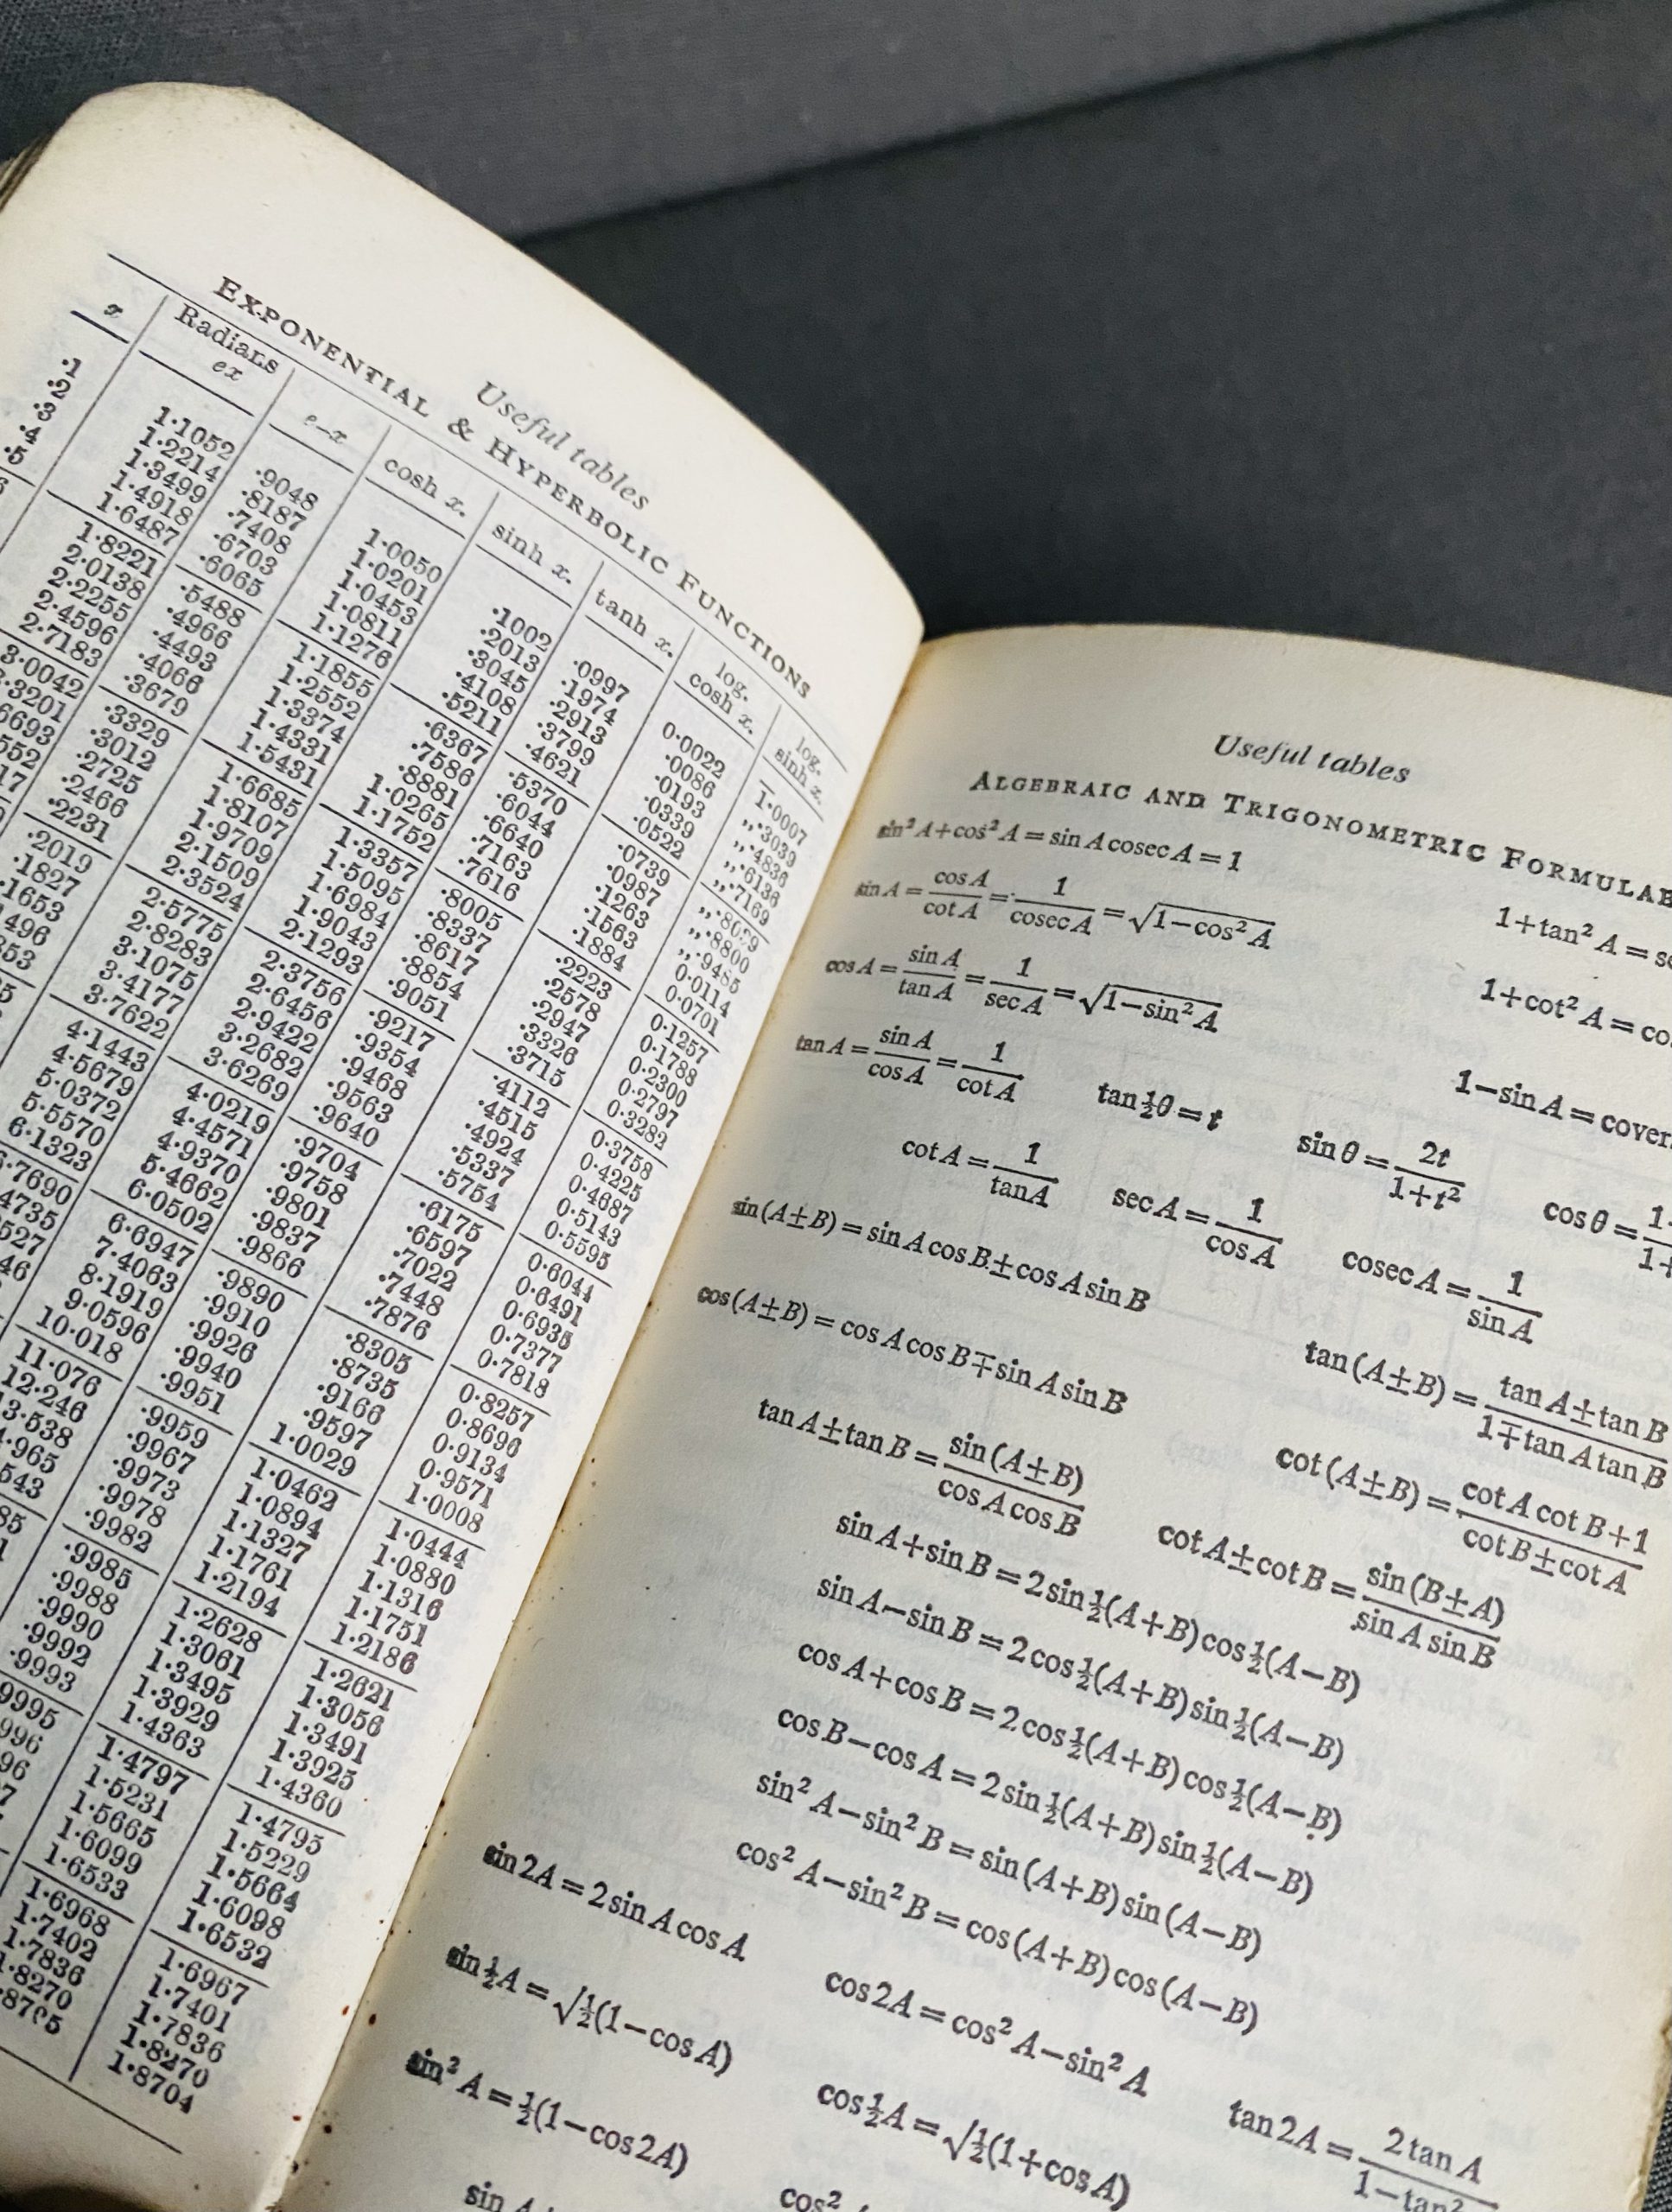 Useful tables
EXPONENTIAL & HYPERBOLIC FUNCTIONS
x Radians eˣ e−x cosh x. sinh x. tanh x. log. cosh x. log. sinh x.
·1 1·1052 ·9048 1·0050 ·1002 ·0997 0·0022 1̄·0007
·2 1·2214 ·8187 1·0201 ·2013 ·1974 ·0086 ,,·3039
·3 1·3499 ·7408 1·0453 ·3045 ·2913 ·0193 ,,·4836
·4 1·4918 ·6703 1·0811 ·4108 ·3799 ·0339 ,,·6136
·5 1·6487 ·6065 1·1276 ·5211 ·4621 ·0522 ,,·7169
6 1·8221 ·5488 1·1855 ·6367 ·5370 ·0739 ,,·8039
2·0138 ·4966 1·2552 ·7586 ·6044 ·0987 ,,·8800
2·2255 ·4493 1·3374 ·8881 ·6640 ·1263 ,,·9485
2·4596 ·4066 1·4331 1·0265 ·7163 ·1563 0·0114
2·7183 ·3679 1·5431 1·1752 ·7616 ·1884 0·0701
3·0042 ·3329 1·6685 1·3357 ·8005 ·2223 0·1257
3·3201 ·3012 1·8107 1·5095 ·8337 ·2578 0·1788
6693 ·2725 1·9709 1·6984 ·8617 ·2947 0·2300
552 ·2466 2·1509 1·9043 ·8854 ·3326 0·2797
17 ·2231 2·3524 2·1293 ·9051 ·3715 0·3282
·2019 2·5775 2·3756 ·9217 ·4112 0·3758
·1827 2·8283 2·6456 ·9354 ·4515 0·4225
·1653 3·1075 2·9422 ·9468 ·4924 0·4687
496 3·4177 3·2682 ·9563 ·5337 0·5143
353 3·7622 3·6269 ·9640 ·5754 0·5595
4·1443 4·0219 ·9704 ·6175 0·6044
4·5679 4·4571 ·9758 ·6597 0·6491
5·0372 4·9370 ·9801 ·7022 0·6935
5·5570 5·4662 ·9837 ·7448 0·7377
6·1323 6·0502 ·9866 ·7876 0·7818
6·7690 6·6947 ·9890 ·8305 0·8257
4735 7·4063 ·9910 ·8735 0·8696
527 8·1919 ·9926 ·9166 0·9134
46 9·0596 ·9940 ·9597 0·9571
10·018 ·9951 1·0029 1·0008
11·076 ·9959 1·0462 1·0444
12·246 ·9967 1·0894 1·0880
3·538 ·9973 1·1327 1·1316
·965 ·9978 1·1761 1·1751
543 ·9982 1·2194 1·2186
85 ·9985 1·2628 1·2621
·9988 1·3061 1·3056
·9990 1·3495 1·3491
·9992 1·3929 1·3925
·9993 1·4363 1·4360
9995 1·4797 1·4795
996 1·5231 1·5229
96 1·5665 1·5664
7 1·6099 1·6098
1·6533 1·6532
1·6968 1·6967
1·7402 1·7401
1·7836 1·7836
·8270 1·8270
1·8704
Useful tables
ALGEBRAIC AND TRIGONOMETRIC FORMULAE
sin² A+cos² A = sin A cosec A = 1
1+tan² A = se
sin A = cos A/cot A = 1/cosec A = √1−cos² A
1+cot² A = co
cos A = sin A/tan A = 1/sec A = √1−sin² A
1−sin A = cover
tan A = sin A/cos A = 1/cot A tan ½θ = t sin θ = 2t/1+t² cos θ = 1
cot A = 1/tan A sec A = 1/cos A cosec A = 1/sin A
sin (A±B) = sin A cos B ± cos A sin B
tan (A±B) = tan A±tan B/1∓tan A tan B
cos (A±B) = cos A cos B ∓ sin A sin B
cot (A±B) = cot A cot B+1/cot B±cot A
tan A±tan B = sin (A±B)/cos A cos B cot A±cot B = sin (B±A)/sin A sin B
sin A+sin B = 2 sin ½(A+B) cos ½(A−B)
sin A−sin B = 2 cos ½(A+B) sin ½(A−B)
cos A+cos B = 2 cos ½(A+B) cos ½(A−B)
cos B−cos A = 2 sin ½(A+B) sin ½(A−B)
sin² A−sin² B = sin (A+B) sin (A−B)
cos² A−sin² B = cos (A+B) cos (A−B)
sin 2A = 2 sin A cos A cos 2A = cos² A−sin² A tan 2A = 2 tan A/1−tan²
sin ½A = √½(1−cos A) cos ½A = √½(1+cos A)
sin² A = ½(1−cos 2A) cos²
sin A